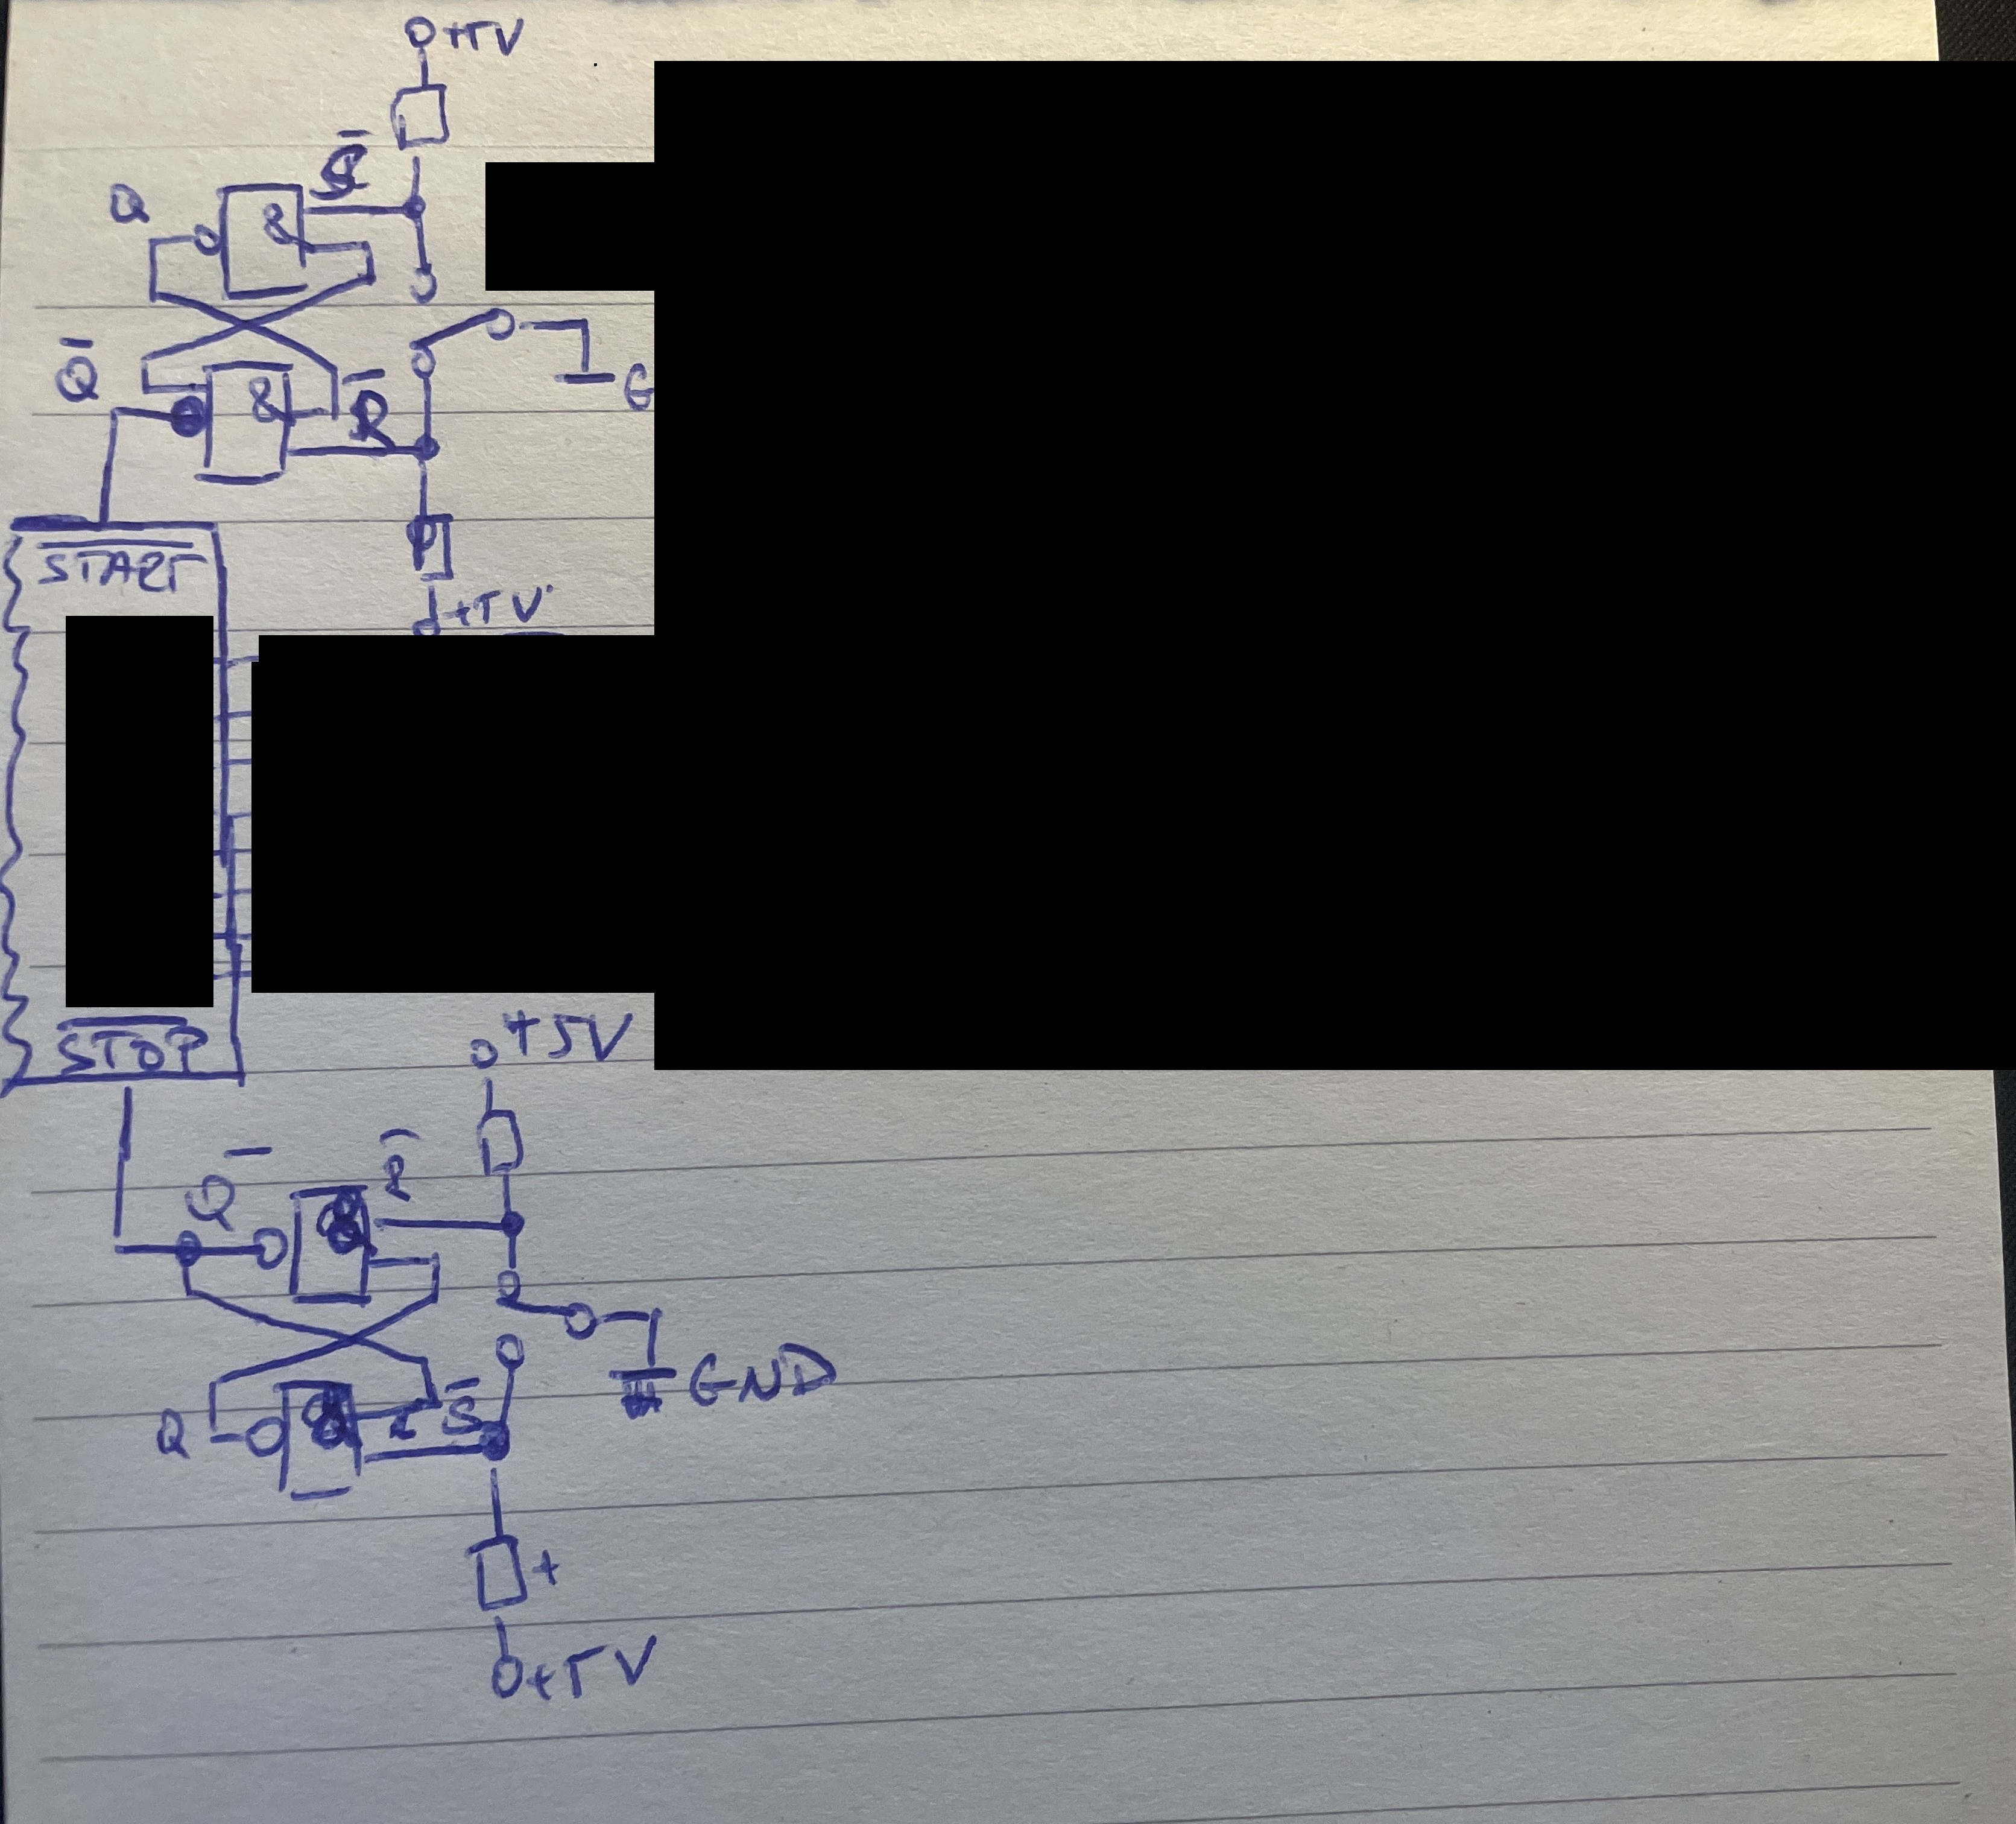 +5V
S̅
Q
&
Q̅
&
R̅
G
START
+5V
STOP
+5V
Q̅
R̅
&
GND
Q
&
S̅
+
+5V